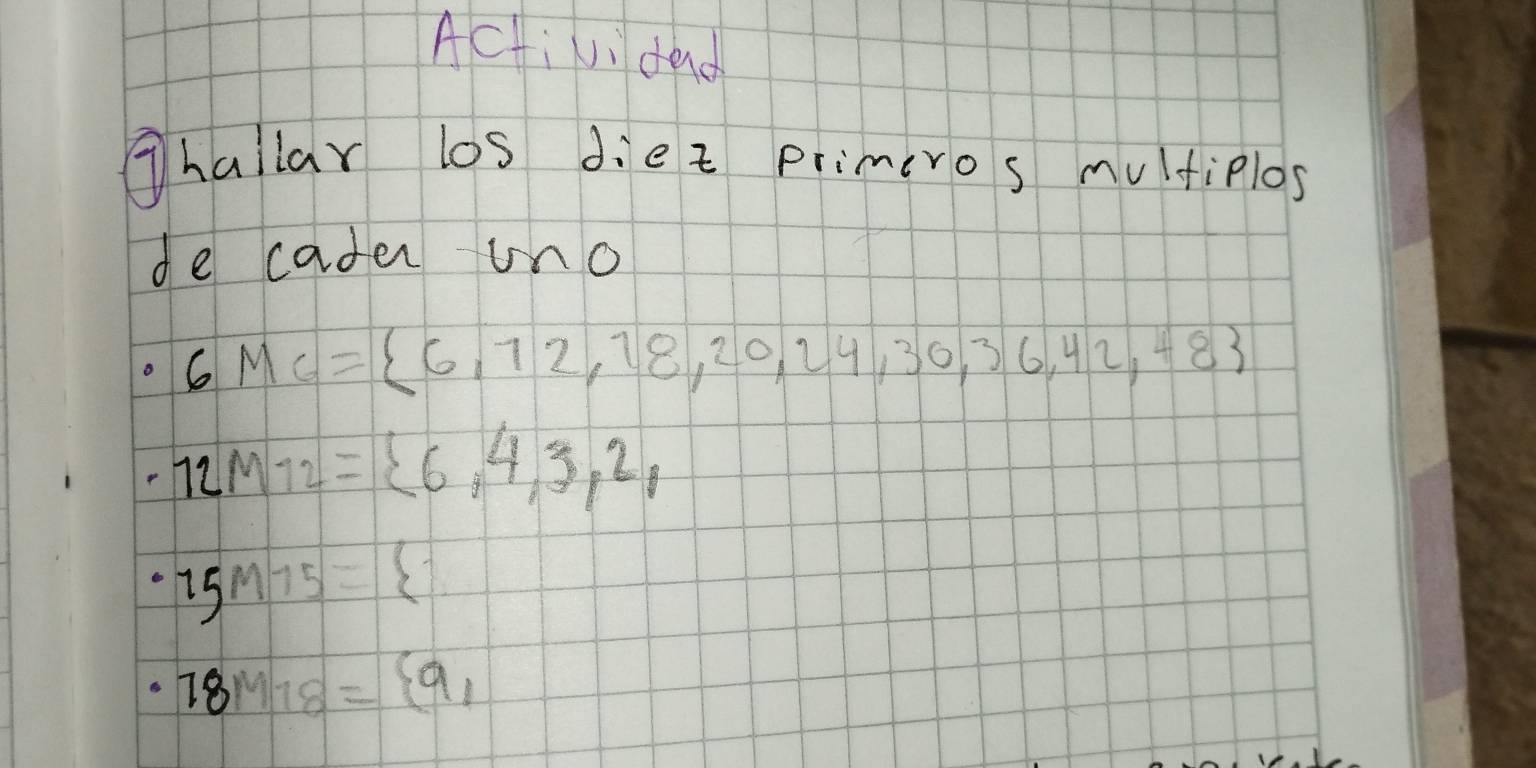 Actividad
① hallar los diez primeros multiplos
de cada uno
• 6 M6 = {6, 12, 18, 20, 24, 30, 36, 42, 48}
• 12 M12 = {6, 4, 3, 2,
• 15 M15 = {
• 18 M18 = {9,